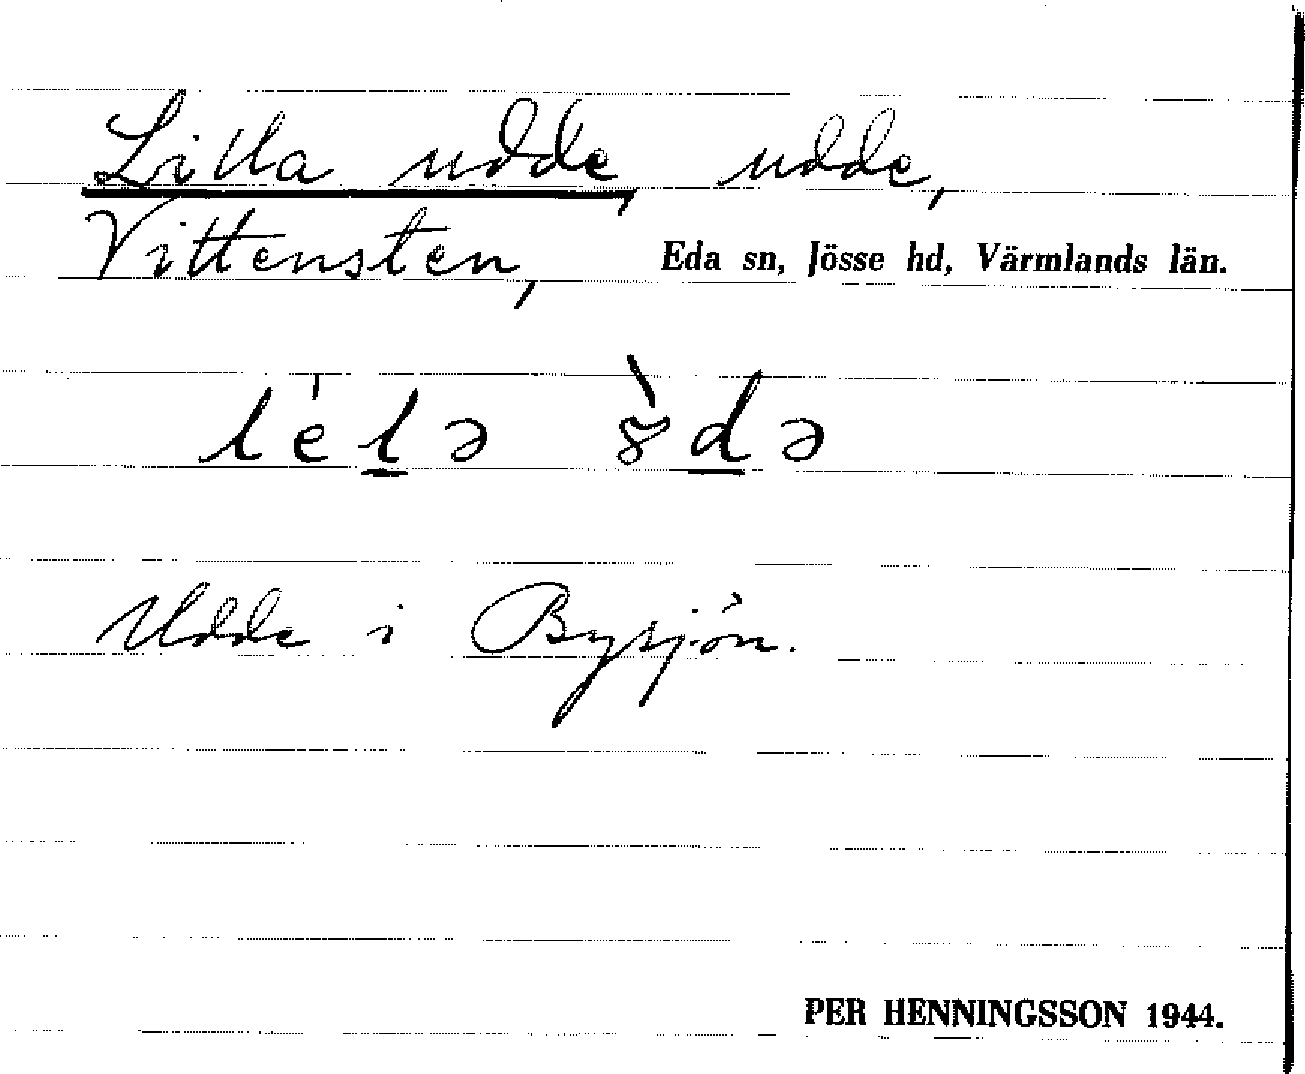 Lilla udde, udde,
Vittensten, Eda sn, Jösse hd, Värmlands län.
le̍l̲ə 8̀d̲ə
Udde i Bysjön.
PER HENNINGSSON 1944.